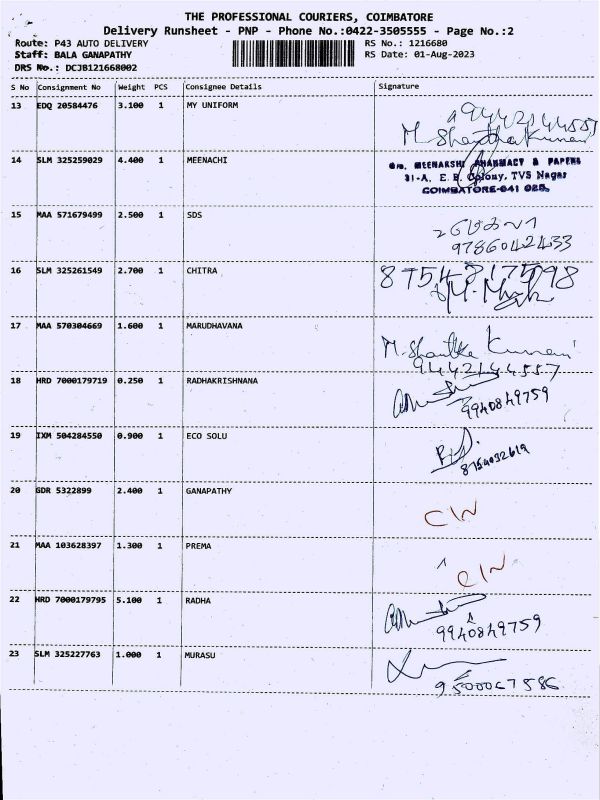 THE PROFESSIONAL COURIERS, COIMBATORE
Delivery Runsheet - PNP - Phone No.:0422-3505555 - Page No.:2
Route: P43 AUTO DELIVERY RS No.: 1216680
Staff: BALA GANAPATHY RS Date: 01-Aug-2023
DRS No.: DCJB121668002
S No Consignment No Weight PCS Consignee Details Signature
13 EDQ 20584476 3.100 1 MY UNIFORM 9442144557
M. Shantha Kumari
14 SLM 325259029 4.400 1 MEENACHI
MEENAKSHI PHARMACY & PAPERS
31-A, E. B. Colony, TVS Nagar
COIMBATORE-641 025.
15 MAA 571679499 2.500 1 SDS
9786042433
16 SLM 325261549 2.700 1 CHITRA 8754817598
17 MAA 570304669 1.600 1 MARUDHAVANA
M. Shantha Kumari
9442144557
18 HRD 7000179719 0.250 1 RADHAKRISHNANA
9940849759
19 IXM 504284550 0.900 1 ECO SOLU
8754032619
20 GDR 5322899 2.400 1 GANAPATHY
C/N
21 MAA 103628397 1.300 1 PREMA
C/N
22 HRD 7000179795 5.100 1 RADHA
9940849759
23 SLM 325227763 1.000 1 MURASU
9500067586